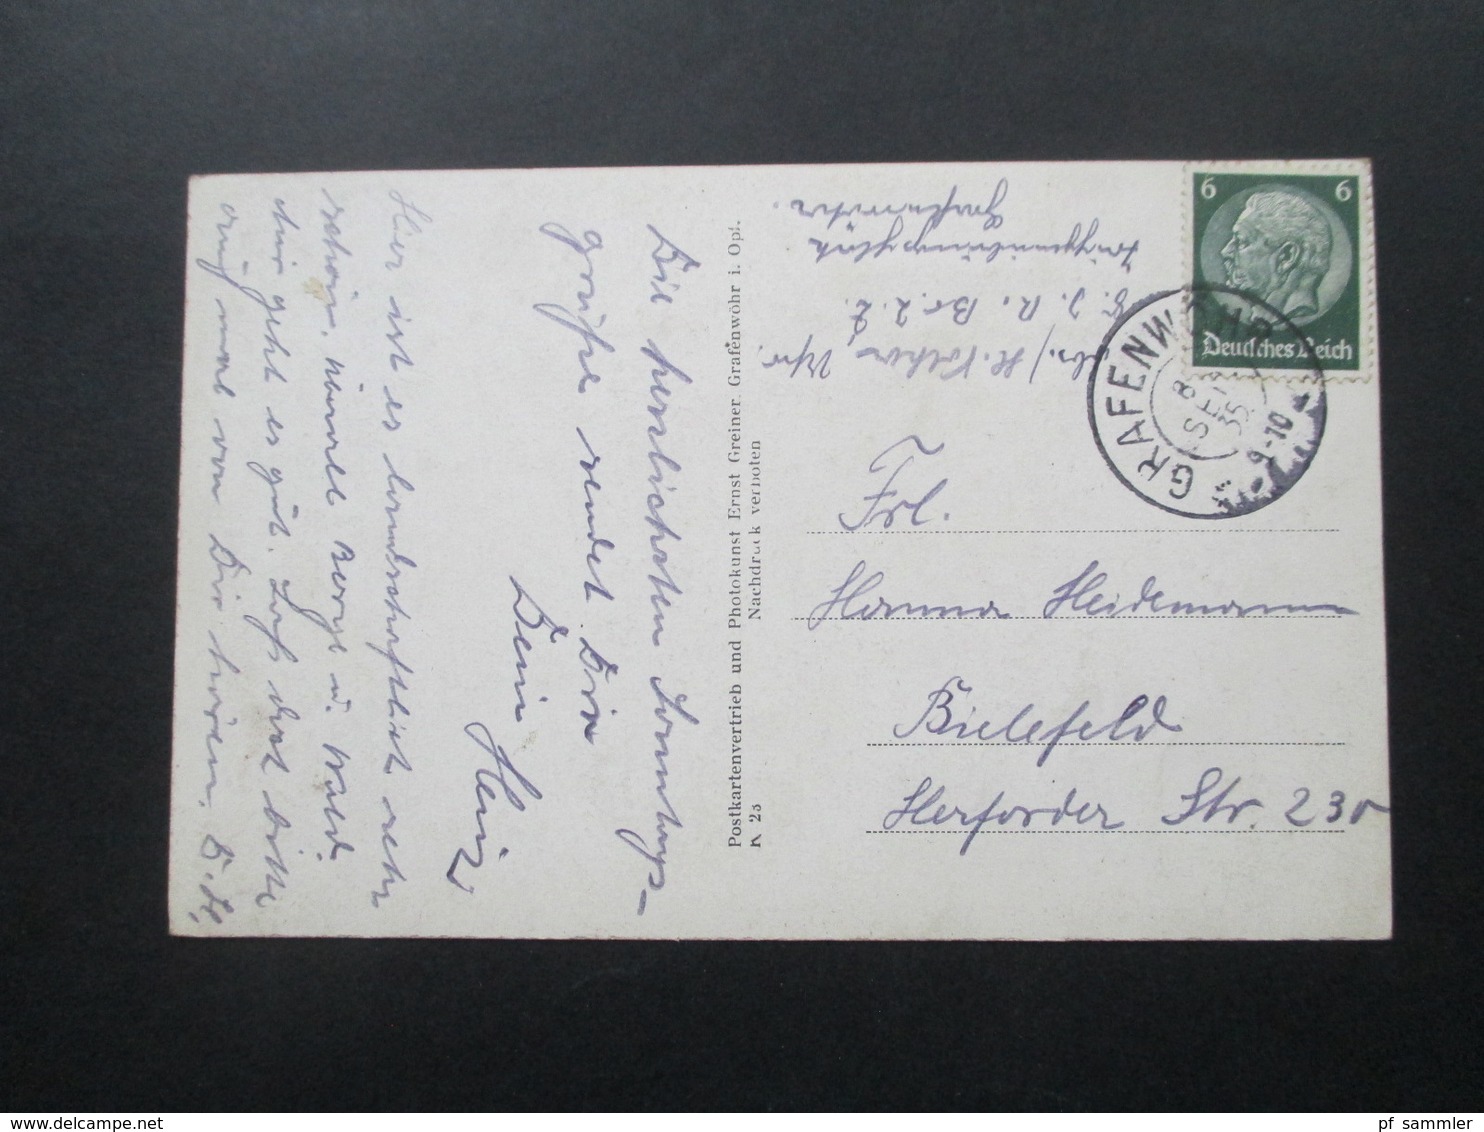 Die herzlichsten Sonntags-
grüße sendet Dir
Dein Heinz
Hier ist es landschaftlich sehr
schön, Berge u. Wald.
Mir geht es gut. Laß doch bitte
auch mal von Dir hören. D. H.
Postkartenvertrieb und Photokunst Ernst Greiner, Grafenwöhr i. Opf.
K 23 Nachdruck verboten
Truppenübungsplatz
Grafenwöhr.
6 6
Deutsches Reich
GRAFENWÖHR
8
SEP
35
9-10
Frl.
Hanna Heidemann
Bielefeld
Herforder Str. 230
pf_sammler